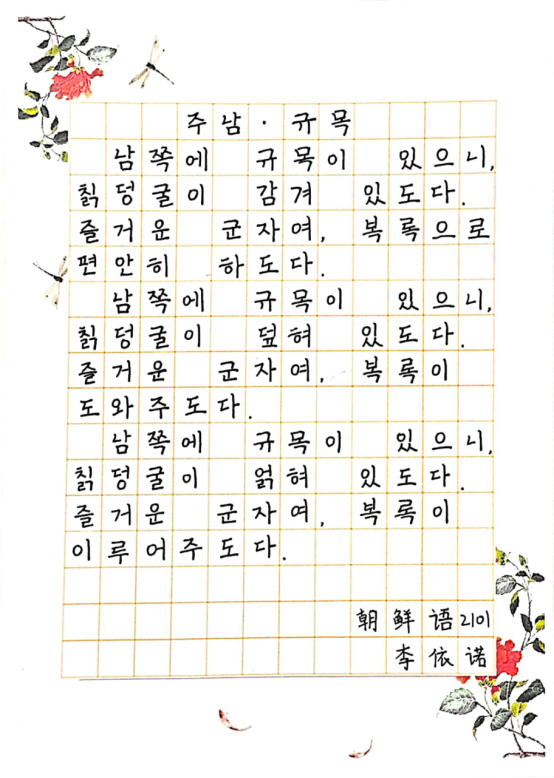 주남 · 규목
남쪽에 규목이 있으니,
칡덩굴이 감겨 있도다.
즐거운 군자여, 복록으로
편안히 하도다.
남쪽에 규목이 있으니,
칡덩굴이 덮혀 있도다.
즐거운 군자여, 복록이
도와주도다.
남쪽에 규목이 있으니,
칡덩굴이 얽혀 있도다.
즐거운 군자여, 복록이
이루어주도다.
朝鲜语2101
李依诺